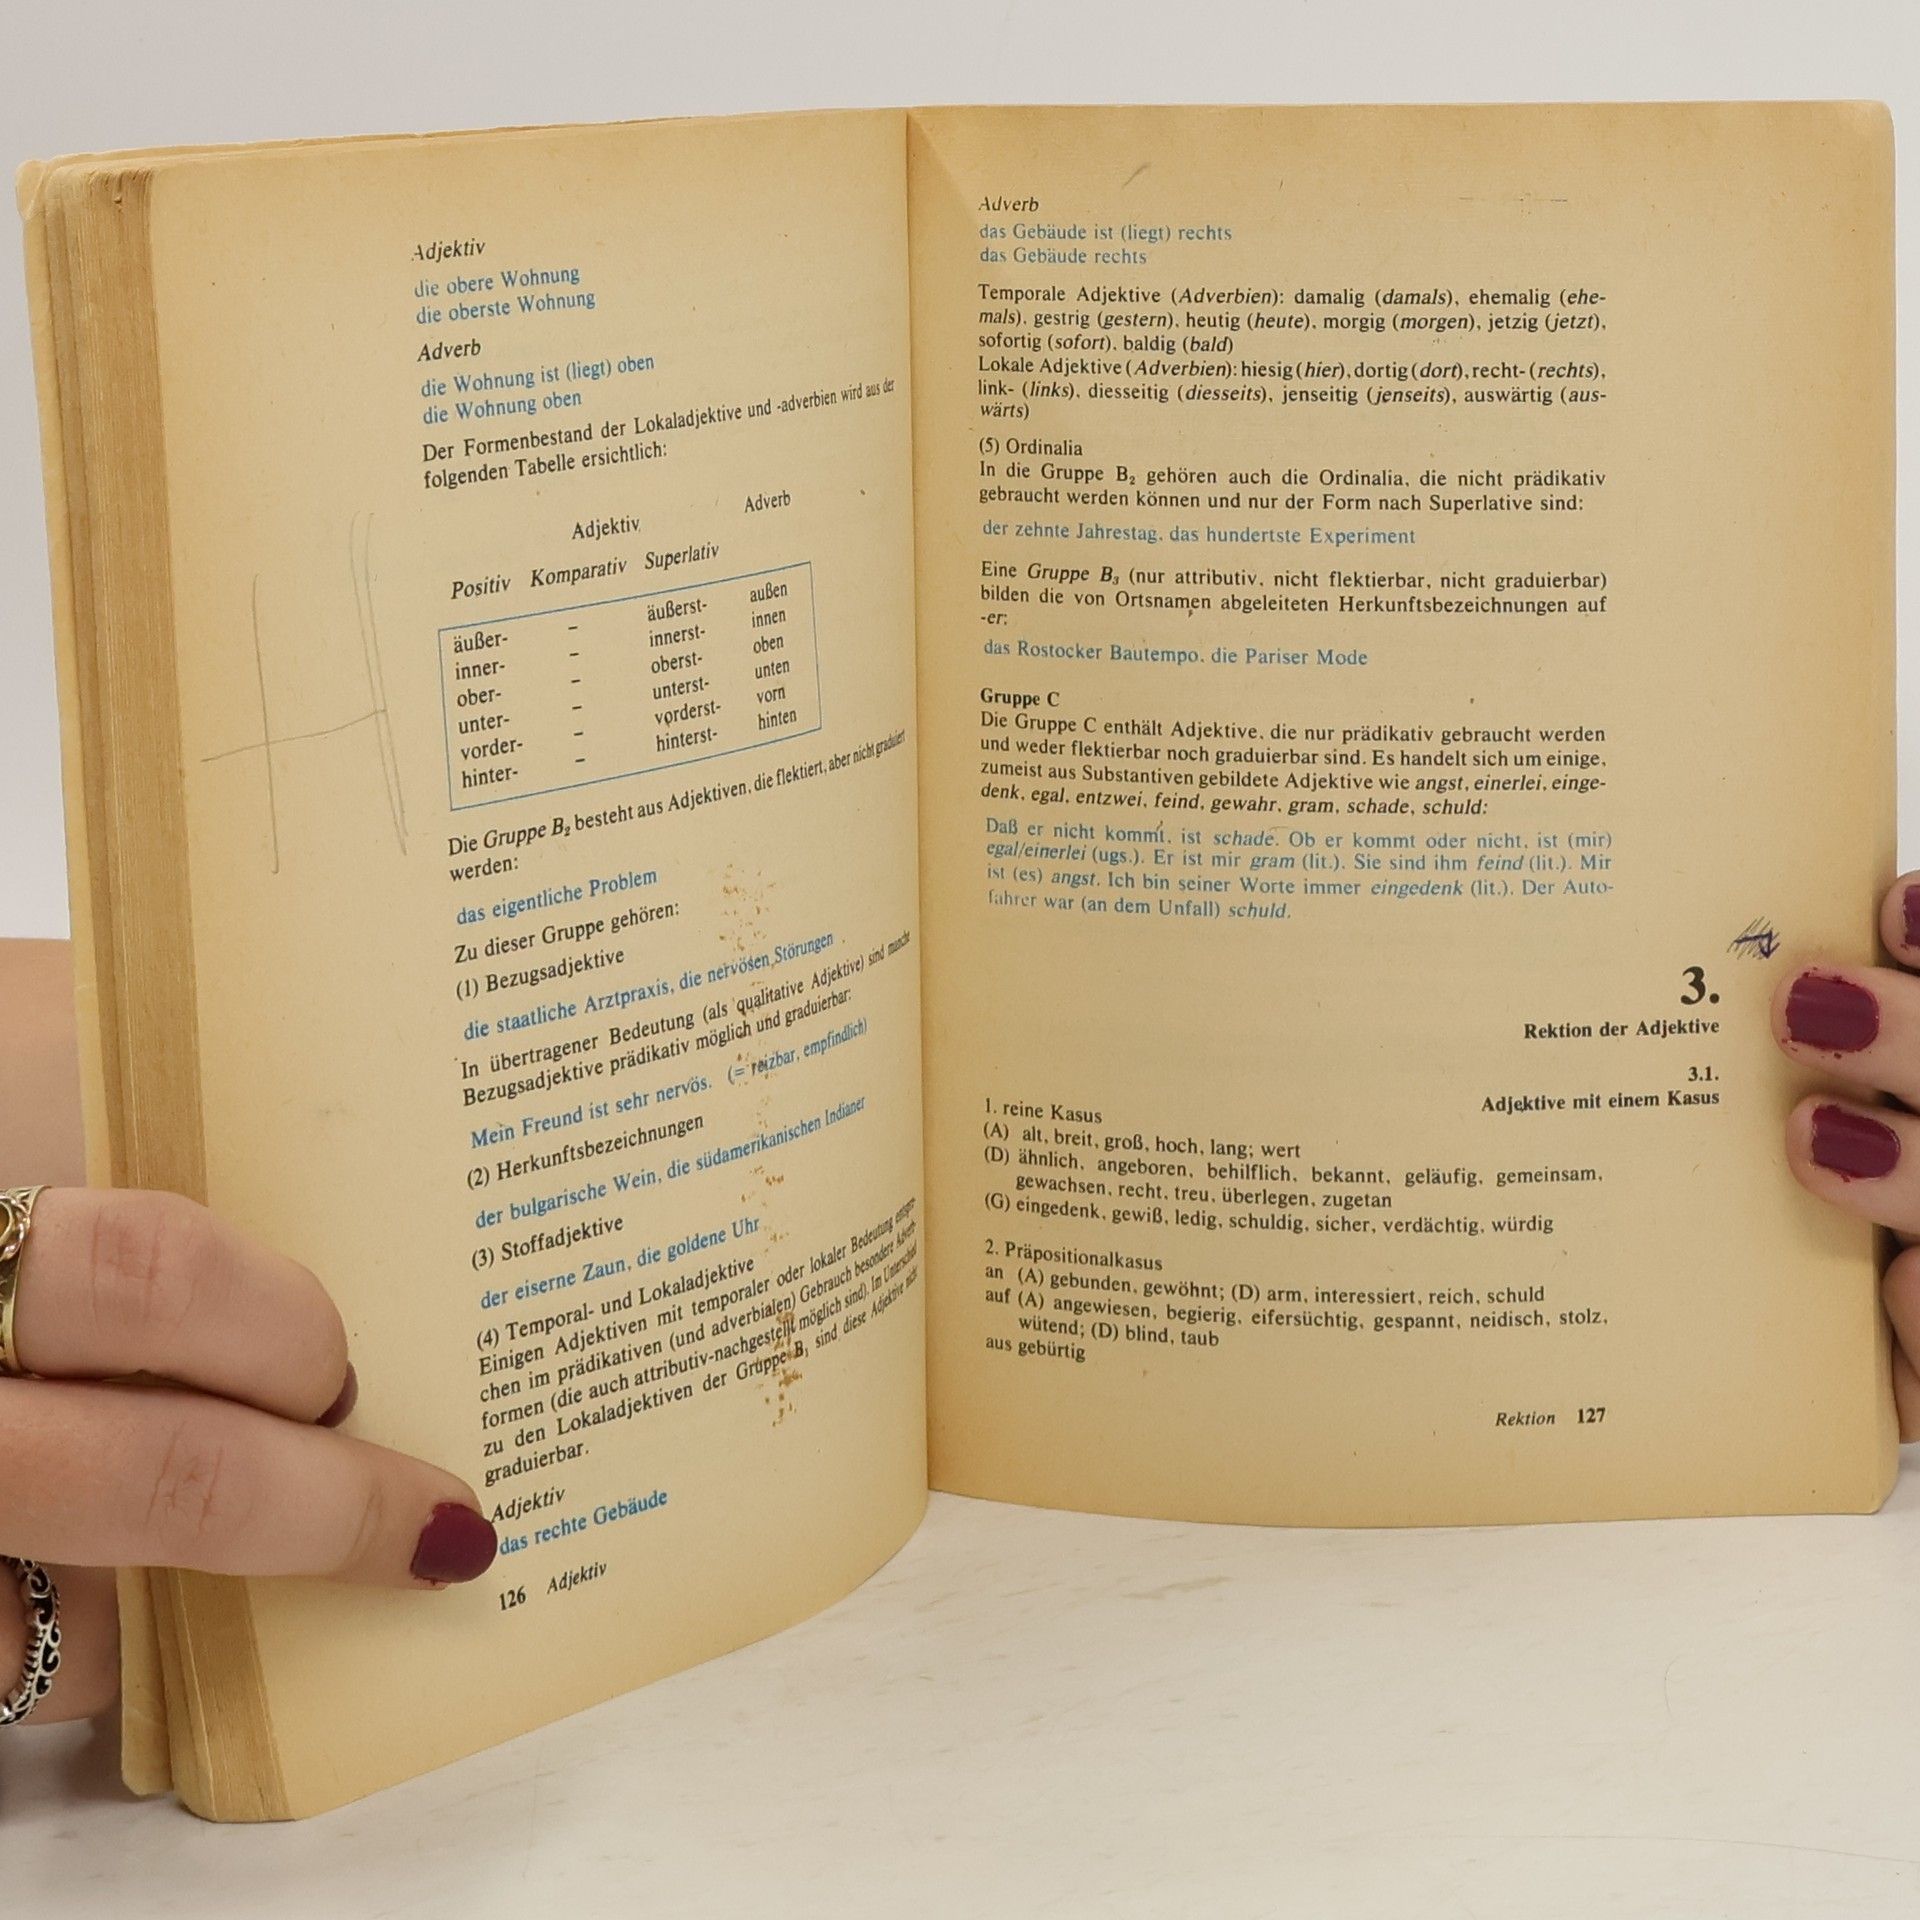 Adjektiv
die obere Wohnung
die oberste Wohnung
Adverb
die Wohnung ist (liegt) oben
die Wohnung oben
Der Formenbestand der Lokaladjektive und -adverbien wird aus der
folgenden Tabelle ersichtlich:
Adjektiv Adverb
Positiv Komparativ Superlativ
äußer- – äußerst- außen
inner- – innerst- innen
ober- – oberst- oben
unter- – unterst- unten
vorder- – vorderst- vorn
hinter- – hinterst- hinten
Die Gruppe B₂ besteht aus Adjektiven, die flektiert, aber nicht graduiert
werden:
das eigentliche Problem
Zu dieser Gruppe gehören:
(1) Bezugsadjektive
die staatliche Arztpraxis, die nervösen Störungen
In übertragener Bedeutung (als qualitative Adjektive) sind manche
Bezugsadjektive prädikativ möglich und graduierbar:
Mein Freund ist sehr nervös. (= reizbar, empfindlich)
(2) Herkunftsbezeichnungen
der bulgarische Wein, die südamerikanischen Indianer
(3) Stoffadjektive
der eiserne Zaun, die goldene Uhr
(4) Temporal- und Lokaladjektive
Einigen Adjektiven mit temporaler oder lokaler Bedeutung entspre-
chen im prädikativen (und adverbialen) Gebrauch besondere Adverb-
formen (die auch attributiv-nachgestellt möglich sind). Im Unterschied
zu den Lokaladjektiven der Gruppe B₁ sind diese Adjektive nicht
graduierbar.
Adjektiv
das rechte Gebäude
126 Adjektiv
Adverb
das Gebäude ist (liegt) rechts
das Gebäude rechts
Temporale Adjektive (Adverbien): damalig (damals), ehemalig (ehe-
mals), gestrig (gestern), heutig (heute), morgig (morgen), jetzig (jetzt),
sofortig (sofort), baldig (bald)
Lokale Adjektive (Adverbien): hiesig (hier), dortig (dort), recht- (rechts),
link- (links), diesseitig (diesseits), jenseitig (jenseits), auswärtig (aus-
wärts)
(5) Ordinalia
In die Gruppe B₂ gehören auch die Ordinalia, die nicht prädikativ
gebraucht werden können und nur der Form nach Superlative sind:
der zehnte Jahrestag, das hundertste Experiment
Eine Gruppe B₃ (nur attributiv, nicht flektierbar, nicht graduierbar)
bilden die von Ortsnamen abgeleiteten Herkunftsbezeichnungen auf
-er:
das Rostocker Bautempo, die Pariser Mode
Gruppe C
Die Gruppe C enthält Adjektive, die nur prädikativ gebraucht werden
und weder flektierbar noch graduierbar sind. Es handelt sich um einige,
zumeist aus Substantiven gebildete Adjektive wie angst, einerlei, einge-
denk, egal, entzwei, feind, gewahr, gram, schade, schuld:
Daß er nicht kommt, ist schade. Ob er kommt oder nicht, ist (mir)
egal/einerlei (ugs.). Er ist mir gram (lit.). Sie sind ihm feind (lit.). Mir
ist (es) angst. Ich bin seiner Worte immer eingedenk (lit.). Der Auto-
fahrer war (an dem Unfall) schuld.
3.
Rektion der Adjektive
3.1.
Adjektive mit einem Kasus
1. reine Kasus
(A) alt, breit, groß, hoch, lang; wert
(D) ähnlich, angeboren, behilflich, bekannt, geläufig, gemeinsam,
gewachsen, recht, treu, überlegen, zugetan
(G) eingedenk, gewiß, ledig, schuldig, sicher, verdächtig, würdig
2. Präpositionalkasus
an (A) gebunden, gewöhnt; (D) arm, interessiert, reich, schuld
auf (A) angewiesen, begierig, eifersüchtig, gespannt, neidisch, stolz,
wütend; (D) blind, taub
aus gebürtig
Rektion 127